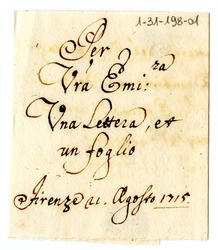 1-31-198-01
Per
Vrã Emi:za
Vna Lettera, et
un foglio
Firenze 21. Agosto 1715